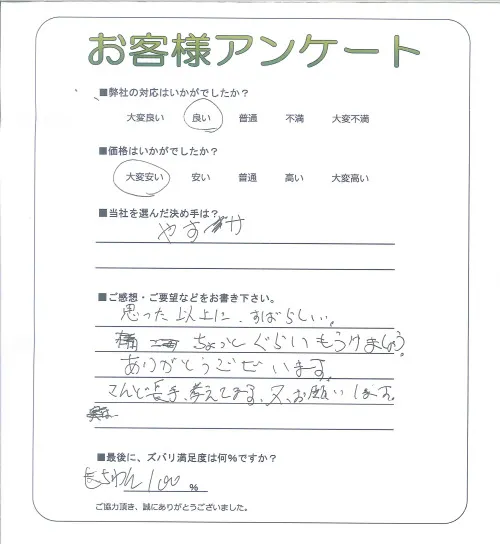 お客様アンケート
■弊社の対応はいかがでしたか？
大変良い 良い 普通 不満 大変不満
■価格はいかがでしたか？
大変安い 安い 普通 高い 大変高い
■当社を選んだ決め手は？
やす
■ご感想・ご要望などをお書き下さい。
思った以上に、すばらしい。
ちょっとぐらいもうけましょう。
ありがとうございます。
こんど長手、考えてます、又、お願いします。
■最後に、ズバリ満足度は何％ですか？
100 %
ご協力頂き、誠にありがとうございました。